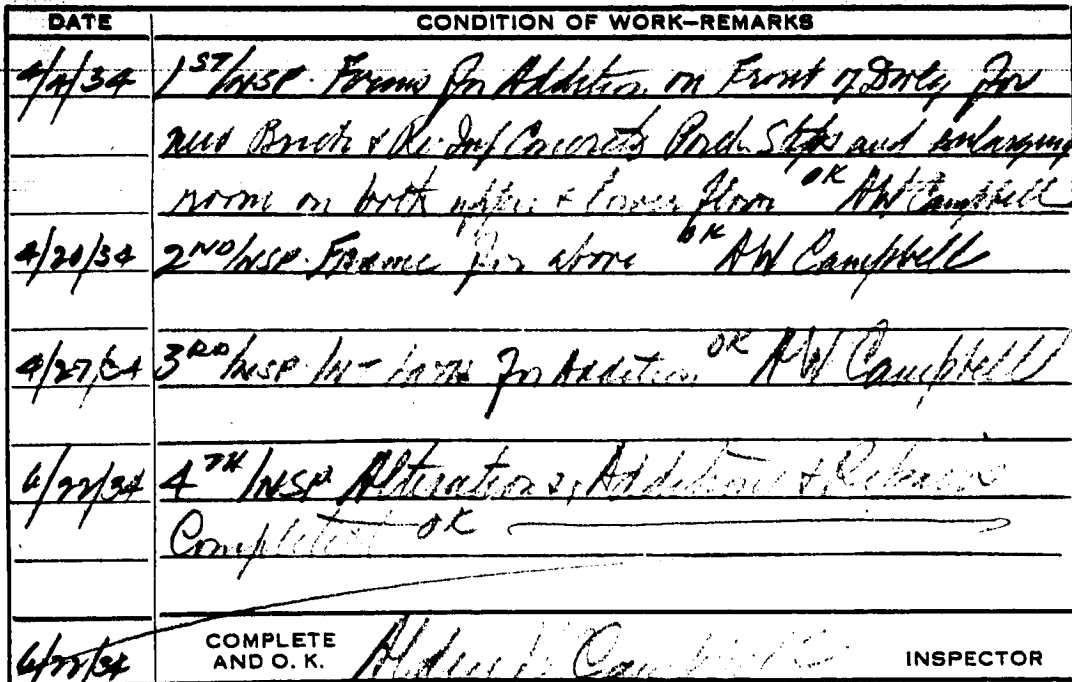 DATE CONDITION OF WORK–REMARKS
4/4/34 1ST INSP. Forms for Addition on Front of Dwlg for
new Brick & Re-Inf Concrete Porch Steps and enlarging
room on both upper & lower floor OK AW Campbell
4/20/34 2ND INSP. Frame for above OK AW Campbell
4/27/34 3RD INSP. Int Lath for Addition OK AW Campbell
6/22/34 4TH INSP. Alterations, Additions & Repairs
Completed OK
6/22/34 COMPLETE AND O. K. Campbell INSPECTOR